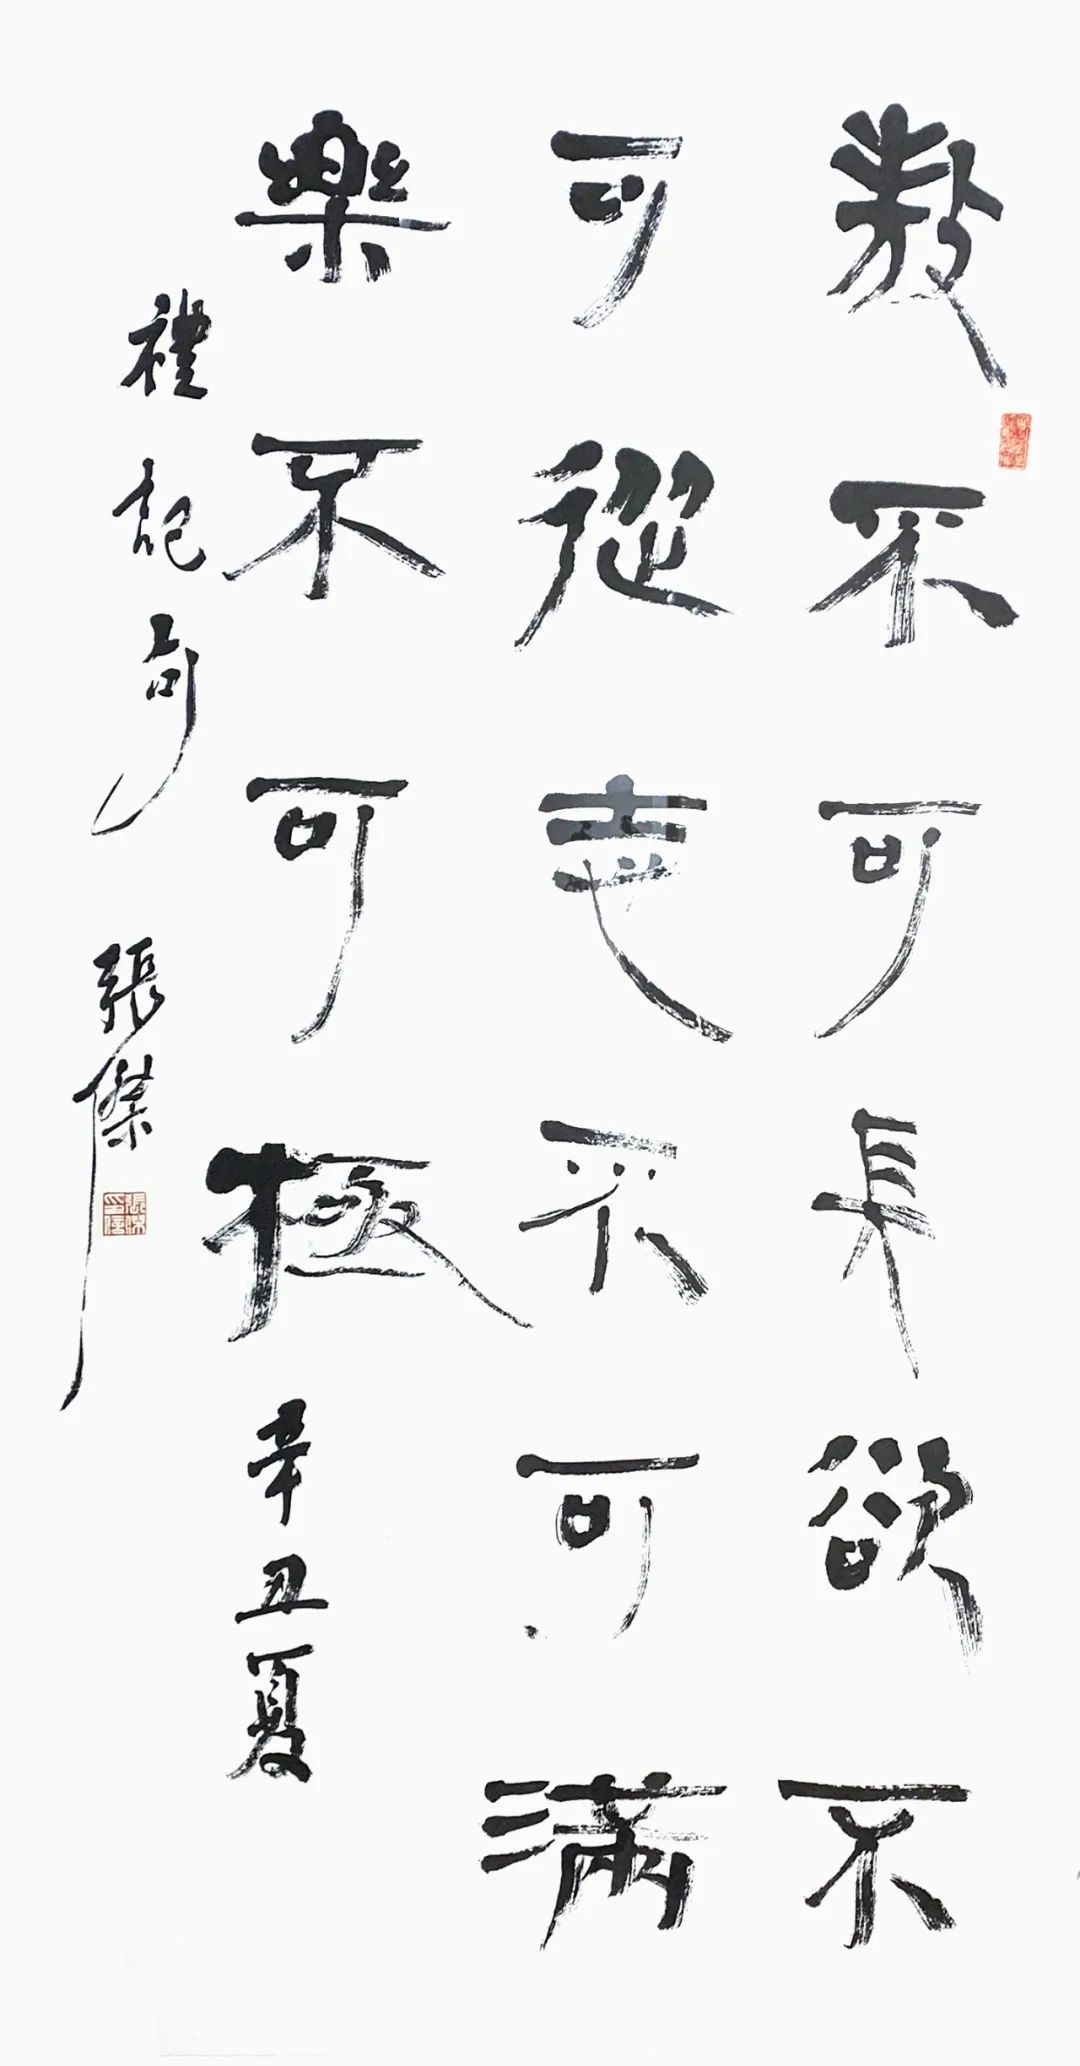 敖不可長欲不
可從志不可滿
樂不可極辛丑夏
禮記句張傑
張傑印信